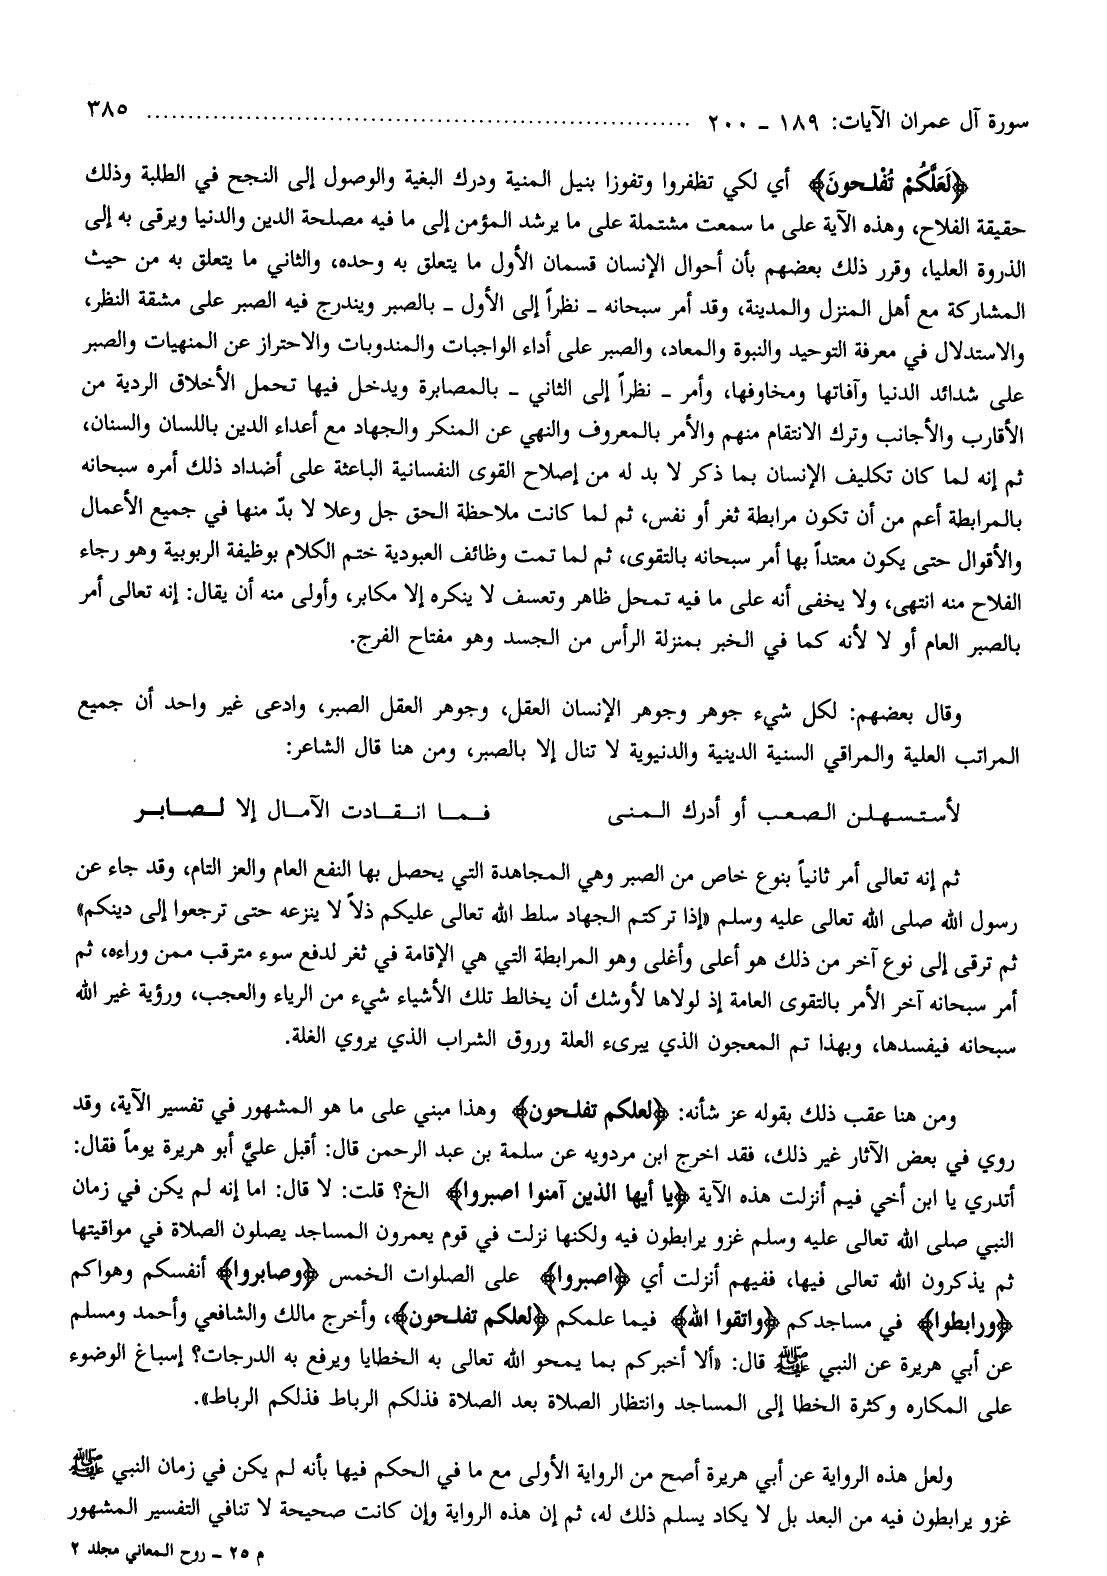 سورة آل عمران الآيات: ١٨٩ ــ ٢٠٠ ........................................ ٣٨٥
﴿لَعَلَّكُمْ تُفْلحونَ﴾ أي لكي تظفروا وتفوزا بنيل المنية ودرك البغية والوصول إلى النجح في الطلبة وذلك
حقيقة الفلاح، وهذه الآية على ما سمعت مشتملة على ما يرشد المؤمن إلى ما فيه مصلحة الدين والدنيا ويرقى به إلى
الذروة العليا، وقرر ذلك بعضهم بأن أحوال الإنسان قسمان الأول ما يتعلق به وحده، والثاني ما يتعلق به من حيث
المشاركة مع أهل المنزل والمدينة، وقد أمر سبحانه ــ نظراً إلى الأول ــ بالصبر ويندرج فيه الصبر على مشقة النظر،
والاستدلال في معرفة التوحيد والنبوة والمعاد، والصبر على أداء الواجبات والمندوبات والاحتراز عن المنهيات والصبر
على شدائد الدنيا وآفاتها ومخاوفها، وأمر ــ نظراً إلى الثاني ــ بالمصابرة ويدخل فيها تحمل الأخلاق الردية من
الأقارب والأجانب وترك الانتقام منهم والأمر بالمعروف والنهي عن المنكر والجهاد مع أعداء الدين باللسان والسنان،
ثم إنه لما كان تكليف الإنسان بما ذكر لا بد له من إصلاح القوى النفسانية الباعثة على أضداد ذلك أمره سبحانه
بالمرابطة أعم من أن تكون مرابطة ثغر أو نفس، ثم لما كانت ملاحظة الحق جل وعلا لا بدّ منها في جميع الأعمال
والأقوال حتى يكون معتداً بها أمر سبحانه بالتقوى، ثم لما تمت وظائف العبودية ختم الكلام بوظيفة الربوبية وهو رجاء
الفلاح منه انتهى، ولا يخفى أنه على ما فيه تمحل ظاهر وتعسف لا ينكره إلا مكابر، وأولى منه أن يقال: إنه تعالى أمر
بالصبر العام أو لا لأنه كما في الخبر بمنزلة الرأس من الجسد وهو مفتاح الفرج.
وقال بعضهم: لكل شيء جوهر وجوهر الإنسان العقل، وجوهر العقل الصبر، وادعى غير واحد أن جميع
المراتب العلية والمراقي السنية الدينية والدنيوية لا تنال إلا بالصبر، ومن هنا قال الشاعر:
لأستسهلن الصعب أو أدرك المنى فما انقادت الآمال إلا لصابر
ثم إنه تعالى أمر ثانياً بنوع خاص من الصبر وهي المجاهدة التي يحصل بها النفع العام والعز التام، وقد جاء عن
رسول الله صلى الله تعالى عليه وسلم «إذا تركتم الجهاد سلط الله تعالى عليكم ذلاً لا ينزعه حتى ترجعوا إلى دينكم»
ثم ترقى إلى نوع آخر من ذلك هو أعلى وأغلى وهو المرابطة التي هي الإقامة في ثغر لدفع سوء مترقب ممن وراءه، ثم
أمر سبحانه آخر الأمر بالتقوى العامة إذ لولاها لأوشك أن يخالط تلك الأشياء شيء من الرياء والعجب، ورؤية غير الله
سبحانه فيفسدها، وبهذا تم المعجون الذي يبرىء العلة وروق الشراب الذي يروي الغلة.
ومن هنا عقب ذلك بقوله عز شأنه: ﴿لعلكم تفلحون﴾ وهذا مبني على ما هو المشهور في تفسير الآية، وقد
روي في بعض الآثار غير ذلك، فقد اخرج ابن مردويه عن سلمة بن عبد الرحمن قال: أقبل عليَّ أبو هريرة يوماً فقال:
أتدري يا ابن أخي فيم أنزلت هذه الآية ﴿يا أيها الذين آمنوا اصبروا﴾ الخ؟ قلت: لا قال: اما إنه لم يكن في زمان
النبي صلى الله تعالى عليه وسلم غزو يرابطون فيه ولكنها نزلت في قوم يعمرون المساجد يصلون الصلاة في مواقيتها
ثم يذكرون الله تعالى فيها، ففيهم أنزلت أي ﴿اصبروا﴾ على الصلوات الخمس ﴿وصابروا﴾ أنفسكم وهواكم
﴿ورابطوا﴾ في مساجدكم ﴿واتقوا الله﴾ فيما علمكم ﴿لعلكم تفلحون﴾، وأخرج مالك والشافعي وأحمد ومسلم
عن أبي هريرة عن النبي ﷺ قال: «ألا أخبركم بما يمحو الله تعالى به الخطايا ويرفع به الدرجات؟ إسباغ الوضوء
على المكاره وكثرة الخطا إلى المساجد وانتظار الصلاة بعد الصلاة فذلكم الرباط فذلكم الرباط».
ولعل هذه الرواية عن أبي هريرة أصح من الرواية الأولى مع ما في الحكم فيها بأنه لم يكن في زمان النبي ﷺ
غزو يرابطون فيه من البعد بل لا يكاد يسلم ذلك له، ثم إن هذه الرواية وإن كانت صحيحة لا تنافي التفسير المشهور
م ٢٥ ــ روح المعاني مجلد ٢